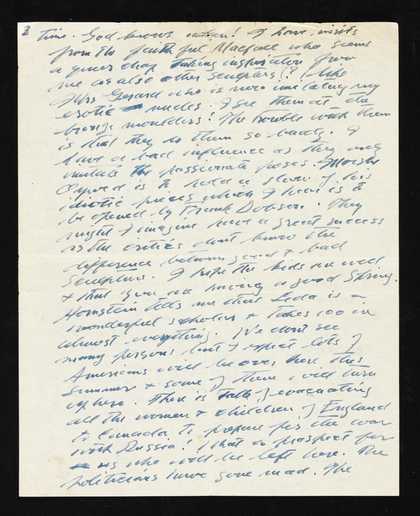 2
time. God knows when! I have visits
from the faithful Macfall who seems
a queer chap taking inspiration from
me as also other sculptors (?) like
Mrs Gerard who is now imitating my
exotic nudes. I see them at the
bronze moulders! The trouble with them
is that they do them so badly. I
have a bad influence as they only
imitate the passionate poses.
is to hold a show of his
idiotic pieces which I hear is to
be opened by Frank Dobson. They
might I imagine have a great success
as the critics don't know the
difference between good & bad
sculpture. I hope the kids are well
& that you are having a good Spring.
Hornstein tells me that Leda is a
wonderful scholar & takes 100 in
almost everything. We don't see
many persons but I expect lots of
Americans will be over here this
Summer & some of them will turn
up here. There is talk of evacuating
all the women & children of England
to Canada to prepare for the war
with Russia! What a prospect for
us who will be left here. The
politicians have gone mad. The